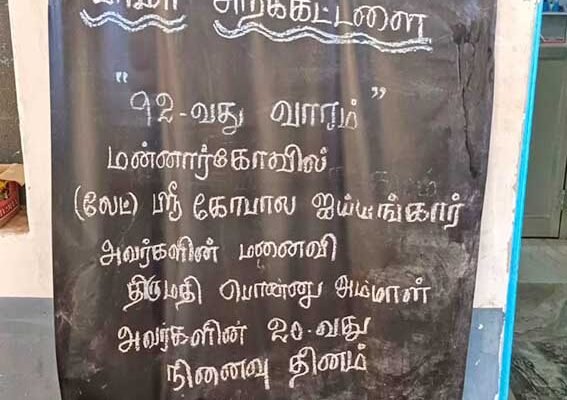 அறக்கட்டளை
"92-வது வாரம்"
மன்னார்கோவில்
(லேட்) ஸ்ரீ கோபால ஐய்யங்கார்
அவர்களின் மனைவி
திருமதி பொண்ணு அம்மாள்
அவர்களின் 20-வது
நினைவு தினம்